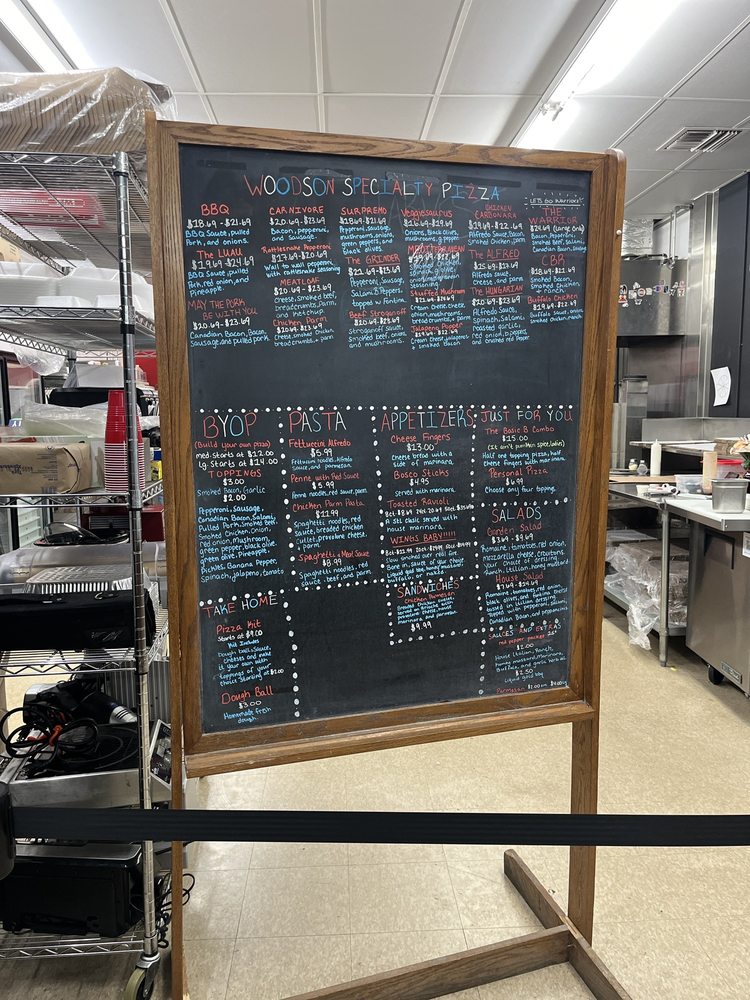 WOODSON SPECIALTY PIZZA
BBQ
$18.69-$21.69
BBQ Sauce, pulled
Pork, and onions.
The LUAU
$19.69-$24.69
BBQ Sauce, pulled
Pork, red onion, and
pineapple.
MAY THE PORK
BE WITH YOU
$20.69-$23.69
Canadian Bacon, Bacon,
Sausage, and pulled pork.
CARNIVORE
$20.69-$23.69
Bacon, pepperoni,
and Sausage.
Rattlesnake Pepperoni
Wall to wall pepperoni
with rattlesnake seasoning
MEATLOAF
$20.69-$23.69
Cheese, smoked beef,
breadcrumbs, parm,
and ketchup
Chicken Parm
$20.69-$23.69
Sauce, smoked chicken,
breadcrumbs, + parm
SUPREMO
$18.69-$21.69
Pepperoni, Sausage,
mushrooms, onions,
green peppers, and
black olives.
The GRINDER
$21.69-$23.69
Pepperoni, Sausage,
Salami, B. Peppers,
topped w/ Fontina.
Beef Stroganoff
$20.69-$23.69
Stroganoff sauce,
Smoked beef, onion,
and mushrooms.
Veggiesaurus
$16.69-$19.69
Onions, Black olives,
mushrooms, g. peppers
MEDITERRANEAN
Stuffed Mushroom
Cream cheese, cheese,
onion, mushrooms,
breadcrumbs, + parm
Jalapeno Popper
Cream Cheese, jalapenos,
+ smoked bacon
CHICKEN
CARBONARA
$19.69-$22.69
Alfredo Sauce, bacon,
Smoked Chicken, parm
The ALFRED
Alfredo sauce,
cheese, and parm
The HUNGARIAN
$20.69-$23.69
Alfredo Sauce,
spinach, Salami,
roasted garlic,
red onion, b. peppers,
and crushed red Pepper
LETS GO WARRIORS!
THE
WARRIOR
$24.69 (large only)
Bacon, Pepperoni,
smoked beef, Salami,
Canadian Bacon, Sausage
CBR
$18.69-$21.69
Smoked Chicken
Smoked Bacon
Ranch
Buffalo Chicken
$19.69-$22.69
Buffalo Sauce, onion,
smoked chicken, ranch
BYOP
(Build your own pizza)
med-Starts at $12.00
lg-Starts at $14.00
TOPPINGS
$3.00
Smoked Bacon, Garlic
$2.00
Pepperoni, Sausage,
Canadian Bacon, Salami,
Pulled Pork, Smoked Beef,
Smoked Chicken, Onion,
red onion, mushroom,
green pepper, black olive,
green olive, Pineapple,
Pickles, Banana Pepper,
spinach, jalapeno, tomato
PASTA
Fettuccini Alfredo
$5.99
Fettuccini noodles, Alfredo
Sauce, and parmesan.
Penne with Red Sauce
$5.99
Penne noodles, red sauce, parm.
Chicken Parm Pasta
$11.99
Spaghetti noodles, red
sauce, breaded chicken
cutlet, provolone cheese,
+ parm
Spaghetti + Meat Sauce
$8.99
Spaghetti noodles, red
sauce w/ beef, and parm
APPETIZERS
Cheese Fingers
$13.00
Cheese bread with a
side of marinara.
Bosco Sticks
$4.95
Served with marinara
Toasted Ravioli
A STL classic served with
house marinara.
WINGS BABY!!!!
SANDWICHES
Chicken Parmesan
$9.99
JUST FOR YOU
The Basic B Combo
$15.00
(It ain't pumpkin spice, ladies)
Half one topping pizza, half
Cheese Fingers with marinara
Personal Pizza
$6.99
Choose any four topping.
SALADS
Garden Salad
$3.69-$9.69
Romaine, tomatoes, red onion,
mozzarella cheese, croutons,
your choice of dressing
(ranch, Italian, honey mustard)
House Salad
Romaine, tomatoes, red onion,
black olives, and Fontina cheese
tossed in Italian dressing
topped with pepperoni, salami,
Canadian Bacon, and pepperoncini
SAUCES AND EXTRAS
red pepper packet 25¢
$1.00
House Italian, Ranch,
honey mustard, Marinara,
Buffalo, and garlic herb oil
$2.50
Liquid gold bbq
TAKE HOME
Pizza Kit
Starts at $9.00
Kit Includes
Dough ball, Sauce,
Cheese, and make
it your own with
toppings of your
choice Starting at $2.00
Dough Ball
$3.00
Homemade fresh
dough.